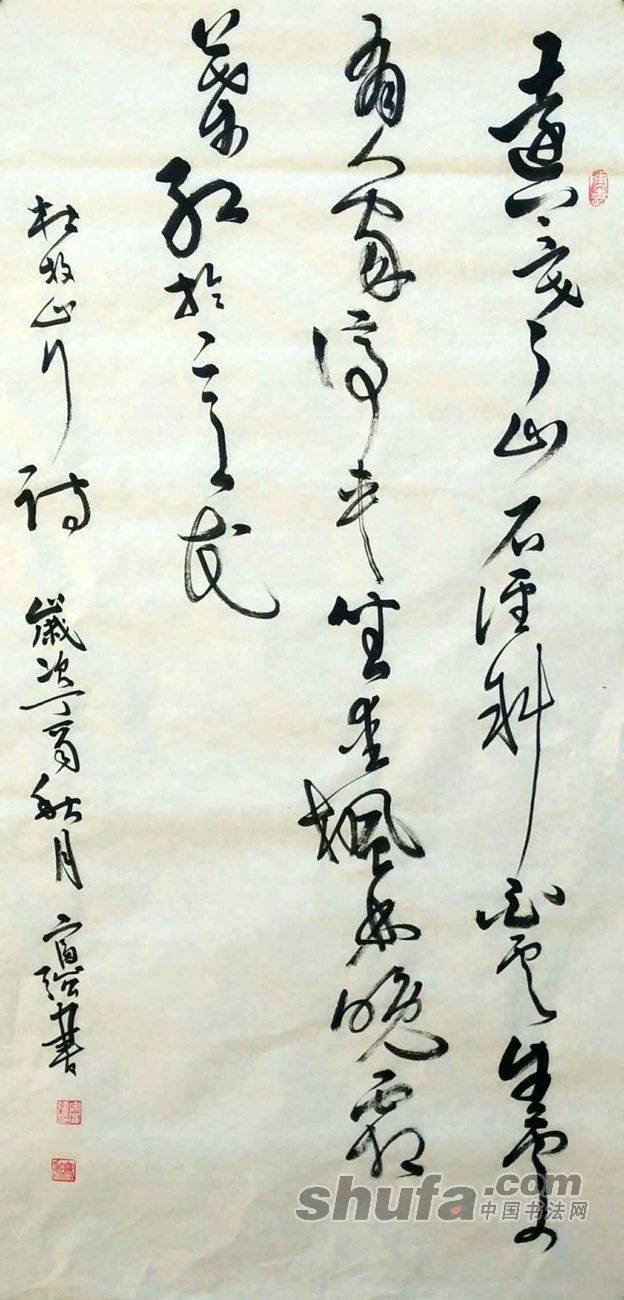 遠上寒山石徑斜白雲生處
有人家停車坐愛楓林晚霜
葉紅於二月花
杜牧山行詩 歲次丁酉秋月 書
shufa.com
中国书法网